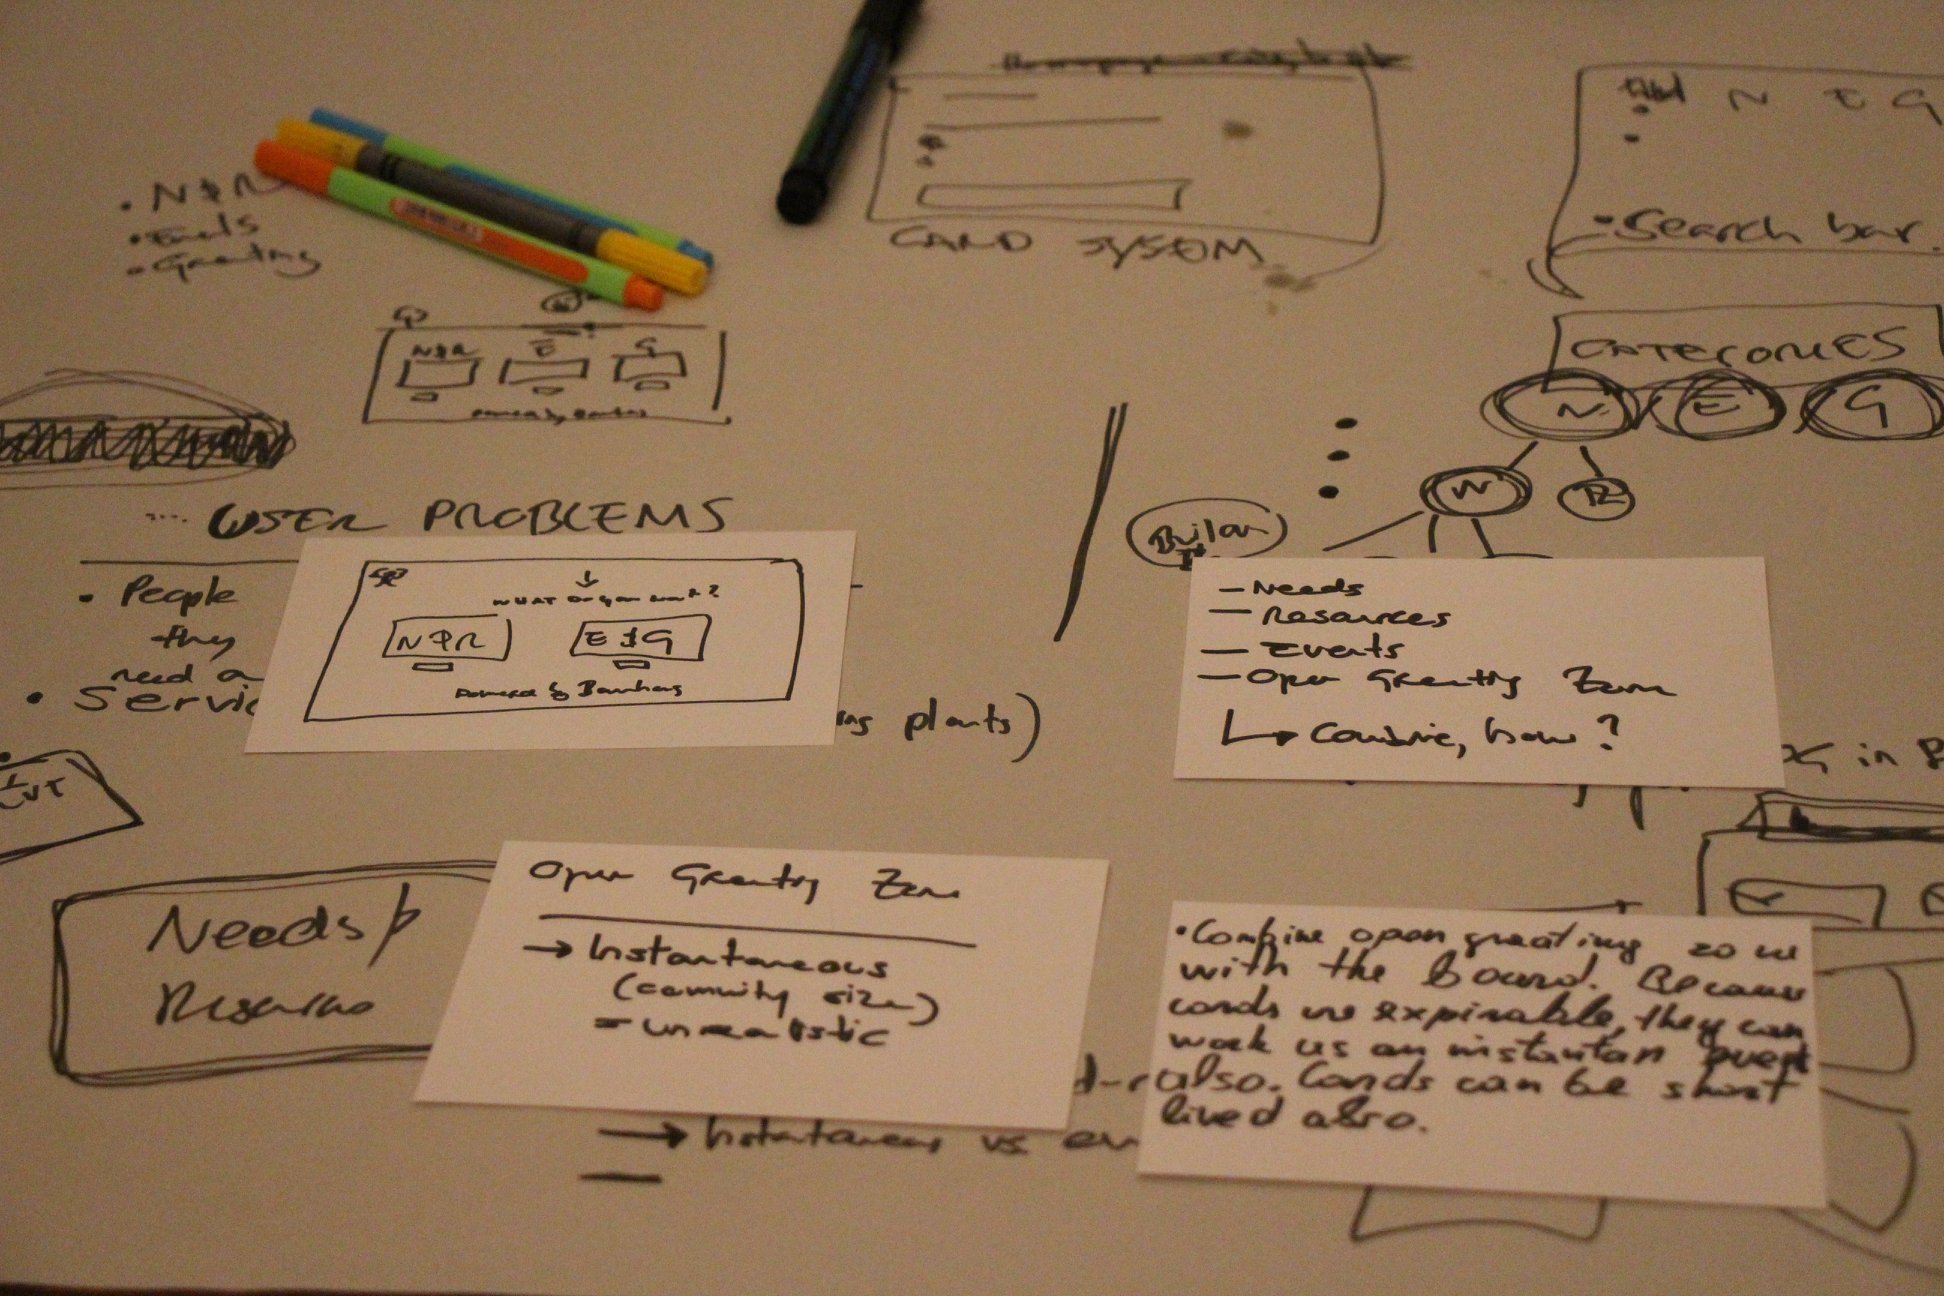 N&R
Events
Greeting
CARD SYSTEM
N E G
Search bar.
N&R E G
CATEGORIES
N E G
N R
USER PROBLEMS
People
they
need a
Servic
plants)
WHAT do you want?
N&R E & G
Powered by
- Needs
- Resources
- Events
- Open Greeting Zone
Combine, how?
in
Needs /
Resources
Open Greeting Zone
→ Instantaneous
(community size)
= unrealistic
→ Instantaneous vs
• Combine open greating zone
with the board. Because
cards are expirable, they can
work as an instantan event
also. Cards can be short
lived also.